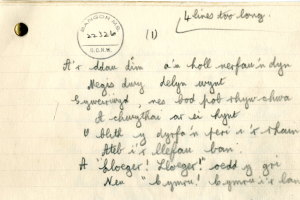 4 lines too long.
BANGOR MS.
22326
U.C.N.W.
(1)
A'r ddau dîm a'u holl nerfau'n dyn
Megis dwy delyn wynt
Egyweiriwyd, nes bod pob rhyw chwa
A chwythai ar ei hynt
O blith y dyrfa'n peri i'r rhain
Ateb i'r llefau ban.
A "Lloeger! Lloeger!" oedd y gri
Neu "Cymru! Cymru i'r lan